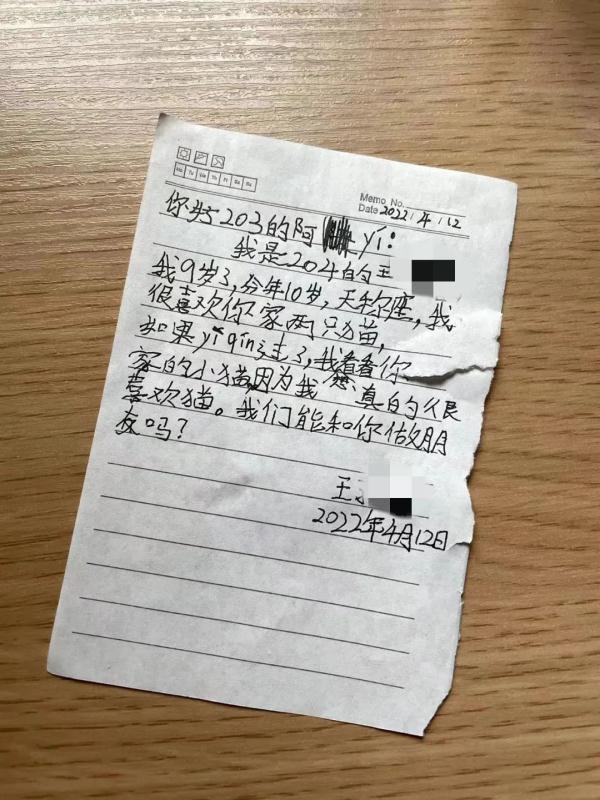 Mo Tu We Th Fr Sa Su
Memo No.
Date 2022.4.12
你好203的阿 yi:
我是204的王
我9岁了,今年10岁,天秤座,我
很喜欢你家两只猫,
如果yi qing走了,我看看你
家的小猫因为我 真的很
喜欢猫。我们能和你做朋
友吗?
王
2022年4月12日